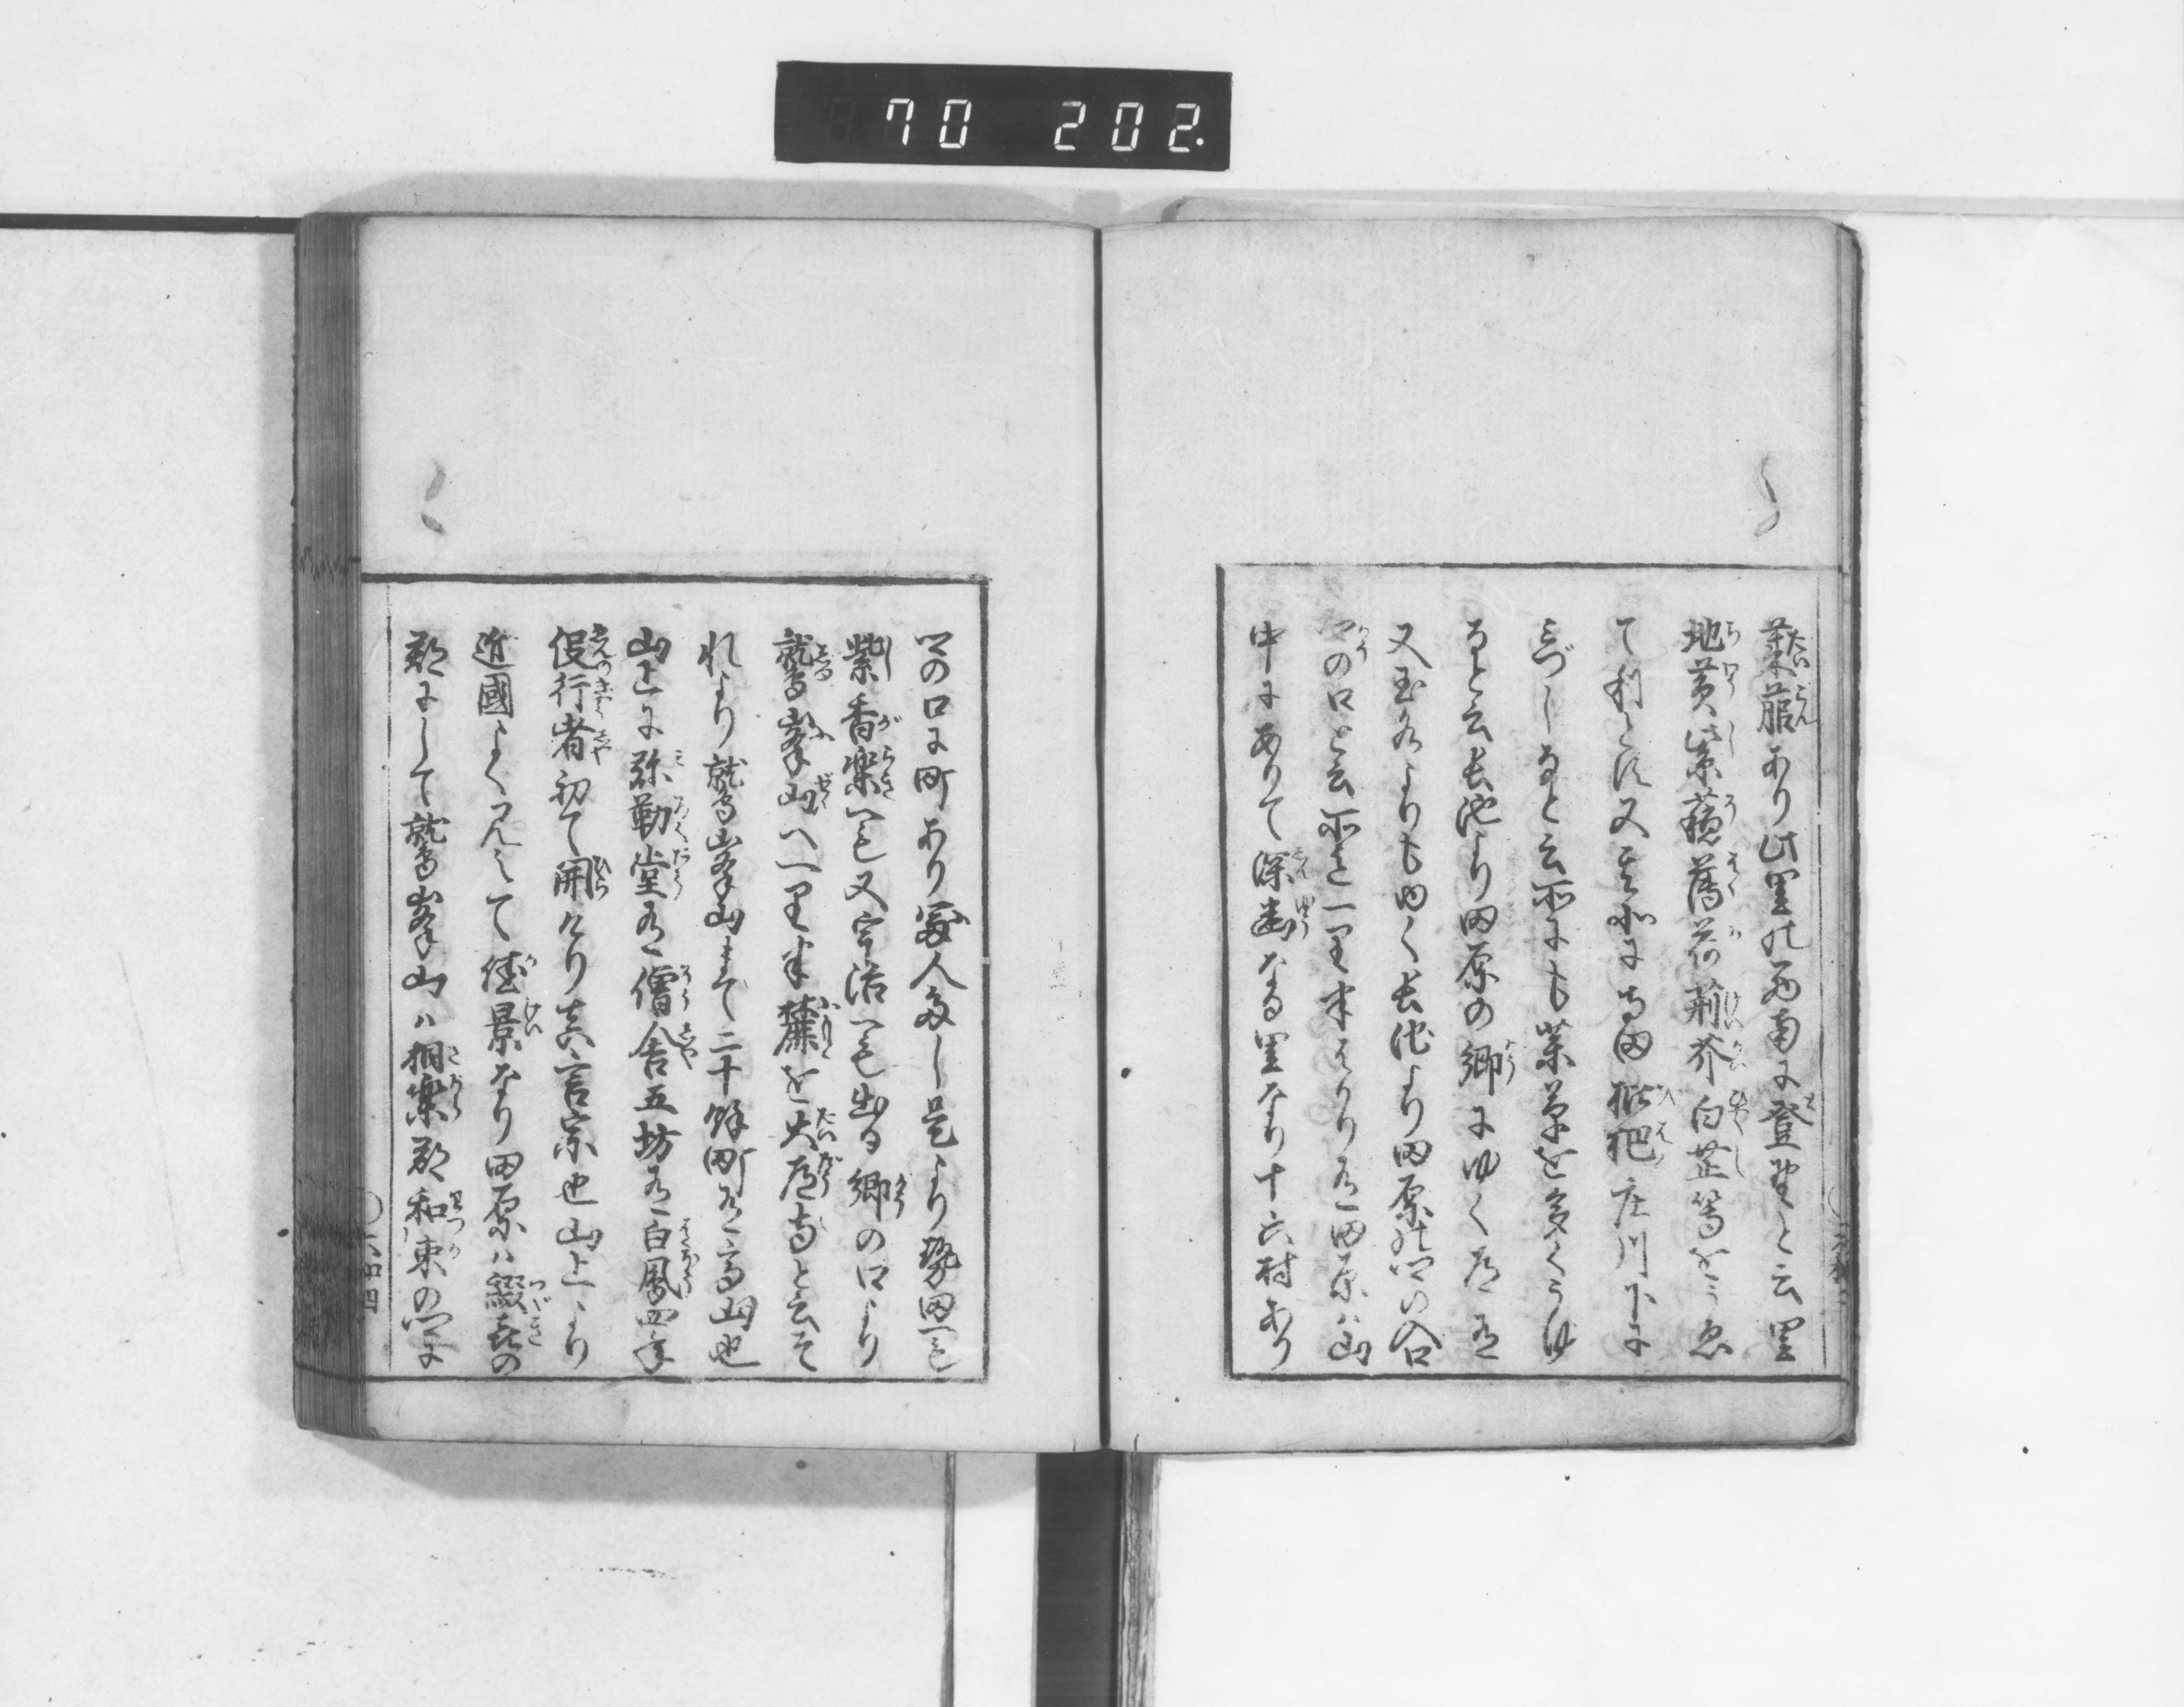 70 202.
菜菔あり此里の西南に登野と云里
地黄紫蘓薄荷荊芥白芷等をうゑ
て利とす又其北に寺田枇杷庄川下に
みづしると云所にも薬草を多くうゆ
ると云長池より田原の郷にゆく道有
又玉水よりもゆく長池より田原の郷の入口
郷の口と云所迄一里半ばかり有田原は山
中にありて深幽なる里なり十六村あり
郷の口に町あり家人多し是より勢田へも
紫香楽へも又宇治へも出る郷の口より
鷲峯山へ一里半麓を大道寺と云そ
れより鷲峯山まで二十餘町有高山也
山上に弥勒堂有僧舎五坊有白鳳四年
役行者初て開けり真言宗也山上より
近國よくみえて佳景なり田原は綴喜の
郡にして鷲峯山は相楽郡和束の内に
六和四